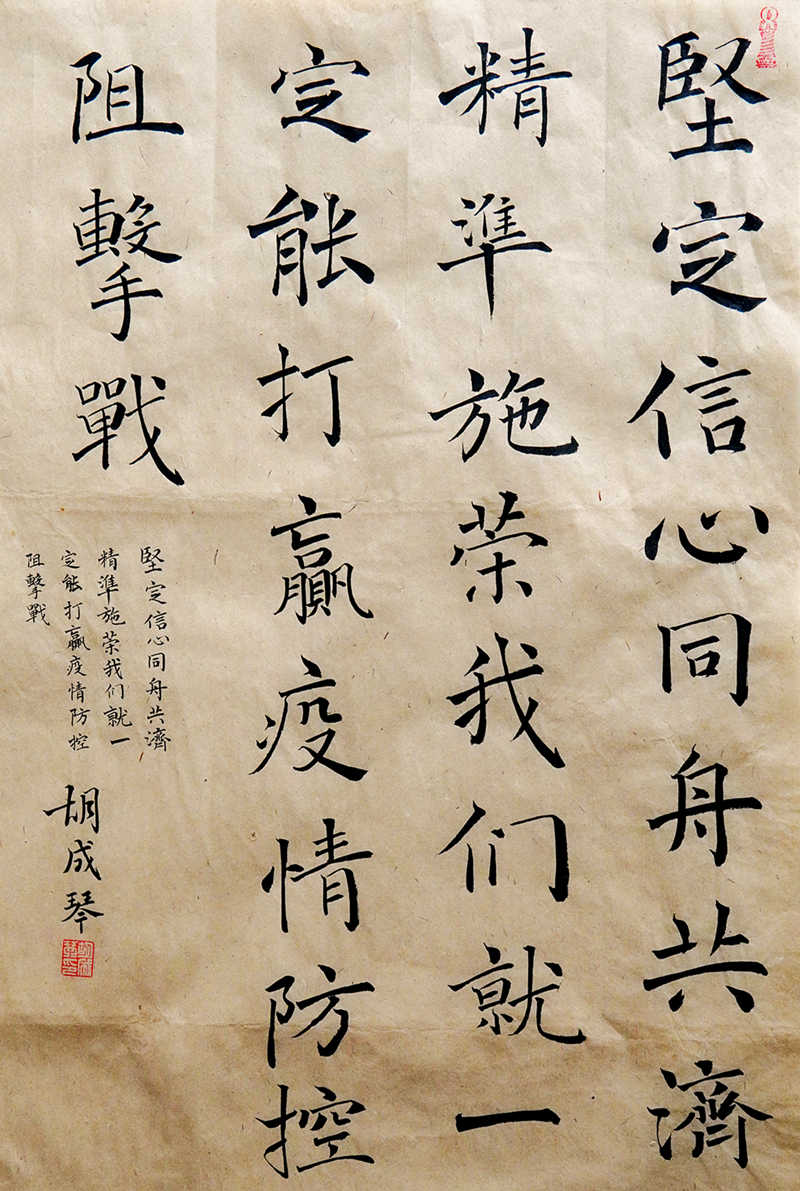 堅定信心同舟共濟
精準施荣我们就一
定能打贏疫情防控
阻擊戰
堅定信心同舟共濟
精準施荣我们就一
定能打贏疫情防控
阻擊戰
胡成琴